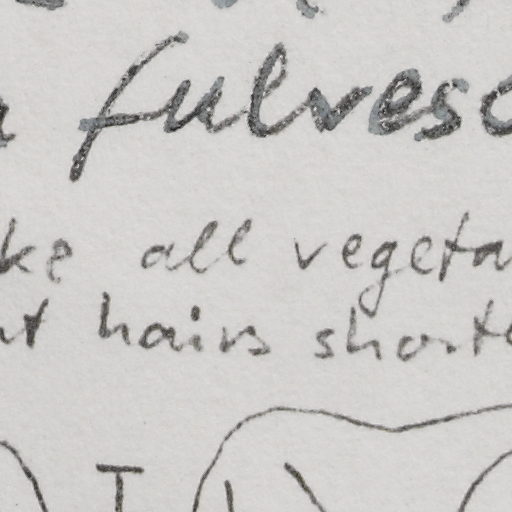 fulvesc
ke all vegeta
hairs shorte